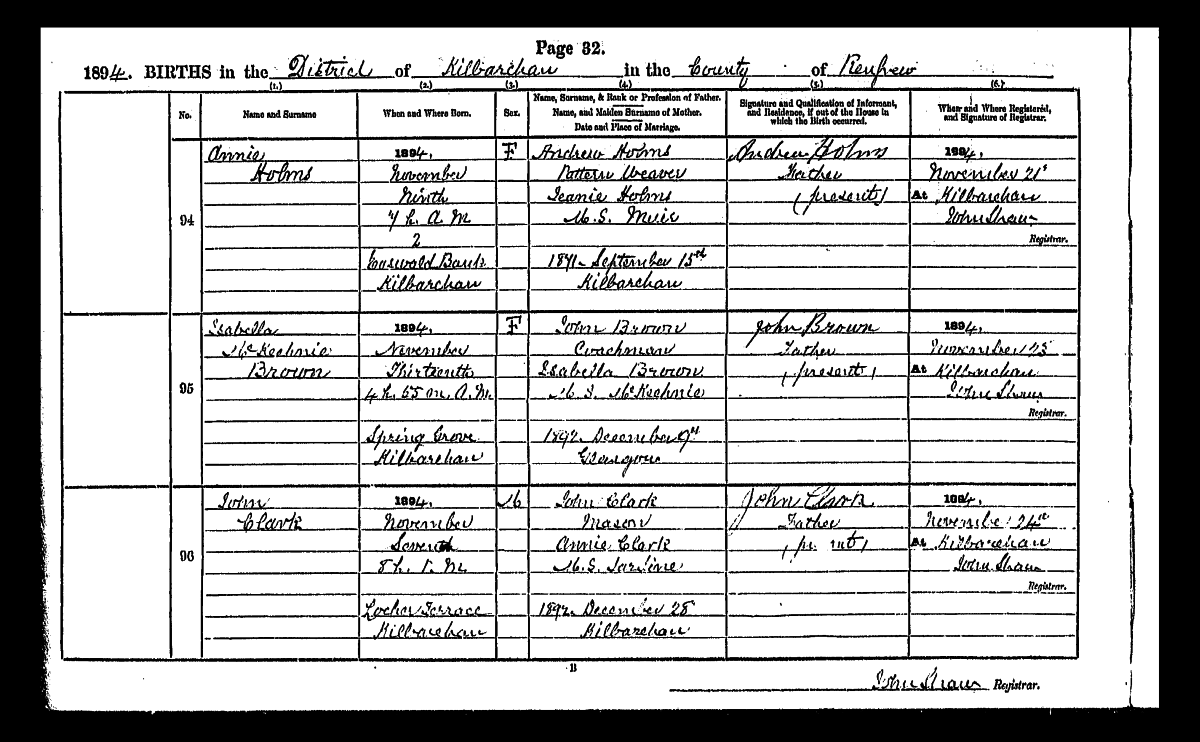 Page 32.
1894. BIRTHS in the District of Kilbarchan in the County of Renfrew
(1.) (2.) (3.) (4.) (5.) (6.)
No.
Name and Surname
When and Where Born.
Sex.
Name, Surname, & Rank or Profession of Father.
Name, and Maiden Surname of Mother.
Date and Place of Marriage.
Signature and Qualification of Informant,
and Residence, if out of the House in
which the Birth occurred.
When and Where Registered,
and Signature of Registrar.
94
Annie
Holms
1894.
November
Ninth
7 h. A.M
2
Bank
Kilbarchan
F
Andrew Holms
Pattern Weaver
Jeanie Holms
M.S. Muir
1871. September 15
Kilbarchan
Andrew Holms
Father
(present)
1894.
November 21
At Kilbarchan
John Shaw
Registrar.
95
Isabella
McKechnie
Brown
1894.
November
Thirteenth
4 h. 55 m. A.M.
Spring Grove
Kilbarchan
F
John Brown
Coachman
Isabella Brown
M.S. McKechnie
1892. December 9
Glasgow
John Brown
Father
(present)
1894.
November 23
At Kilbarchan
John Shaw
Registrar.
96
John
Clark
1894.
November
Seventh
8 h. P.M.
Locher Terrace
Kilbarchan
M
John Clark
Mason
Annie Clark
M.S.
1892. December 28
Kilbarchan
John Clark
Father
(present)
1894.
November 24
At Kilbarchan
John Shaw
Registrar.
B
John Shaw Registrar.